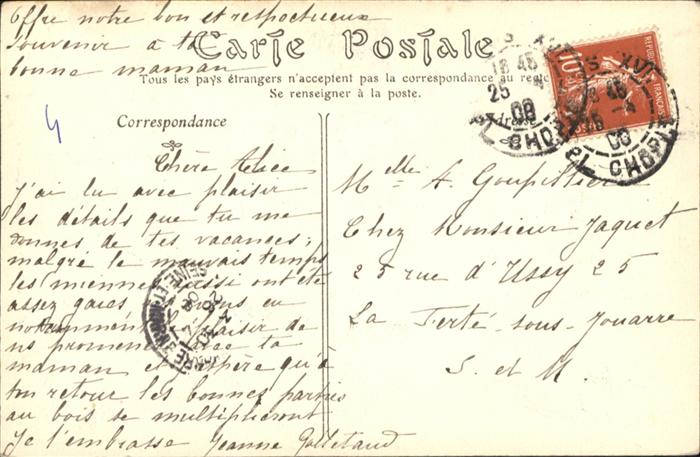 Offre notre bon et respectueux
souvenir à ta
bonne maman
Carte Postale
Tous les pays étrangers n'acceptent pas la correspondance au recto
Se renseigner à la poste.
Correspondance
Adresse
4
Chère Alice
J'ai lu avec plaisir
les détails que tu me
donnes de tes vacances;
malgré le mauvais temps
les miennes aussi ont été
assez gaies en
notamment plaisir de
ns promener avec ta
maman et espère qu'à
ton retour les bonnes parties
au bois se multiplieront
Je t'embrasse Jeanne
Melle A. Goupillière
Chez Monsieur Jaquet
25 rue d'Ussy 25
La Ferté-sous-Jouarre
S. et M.
10
18 45
25
08
PL. CHOPIN